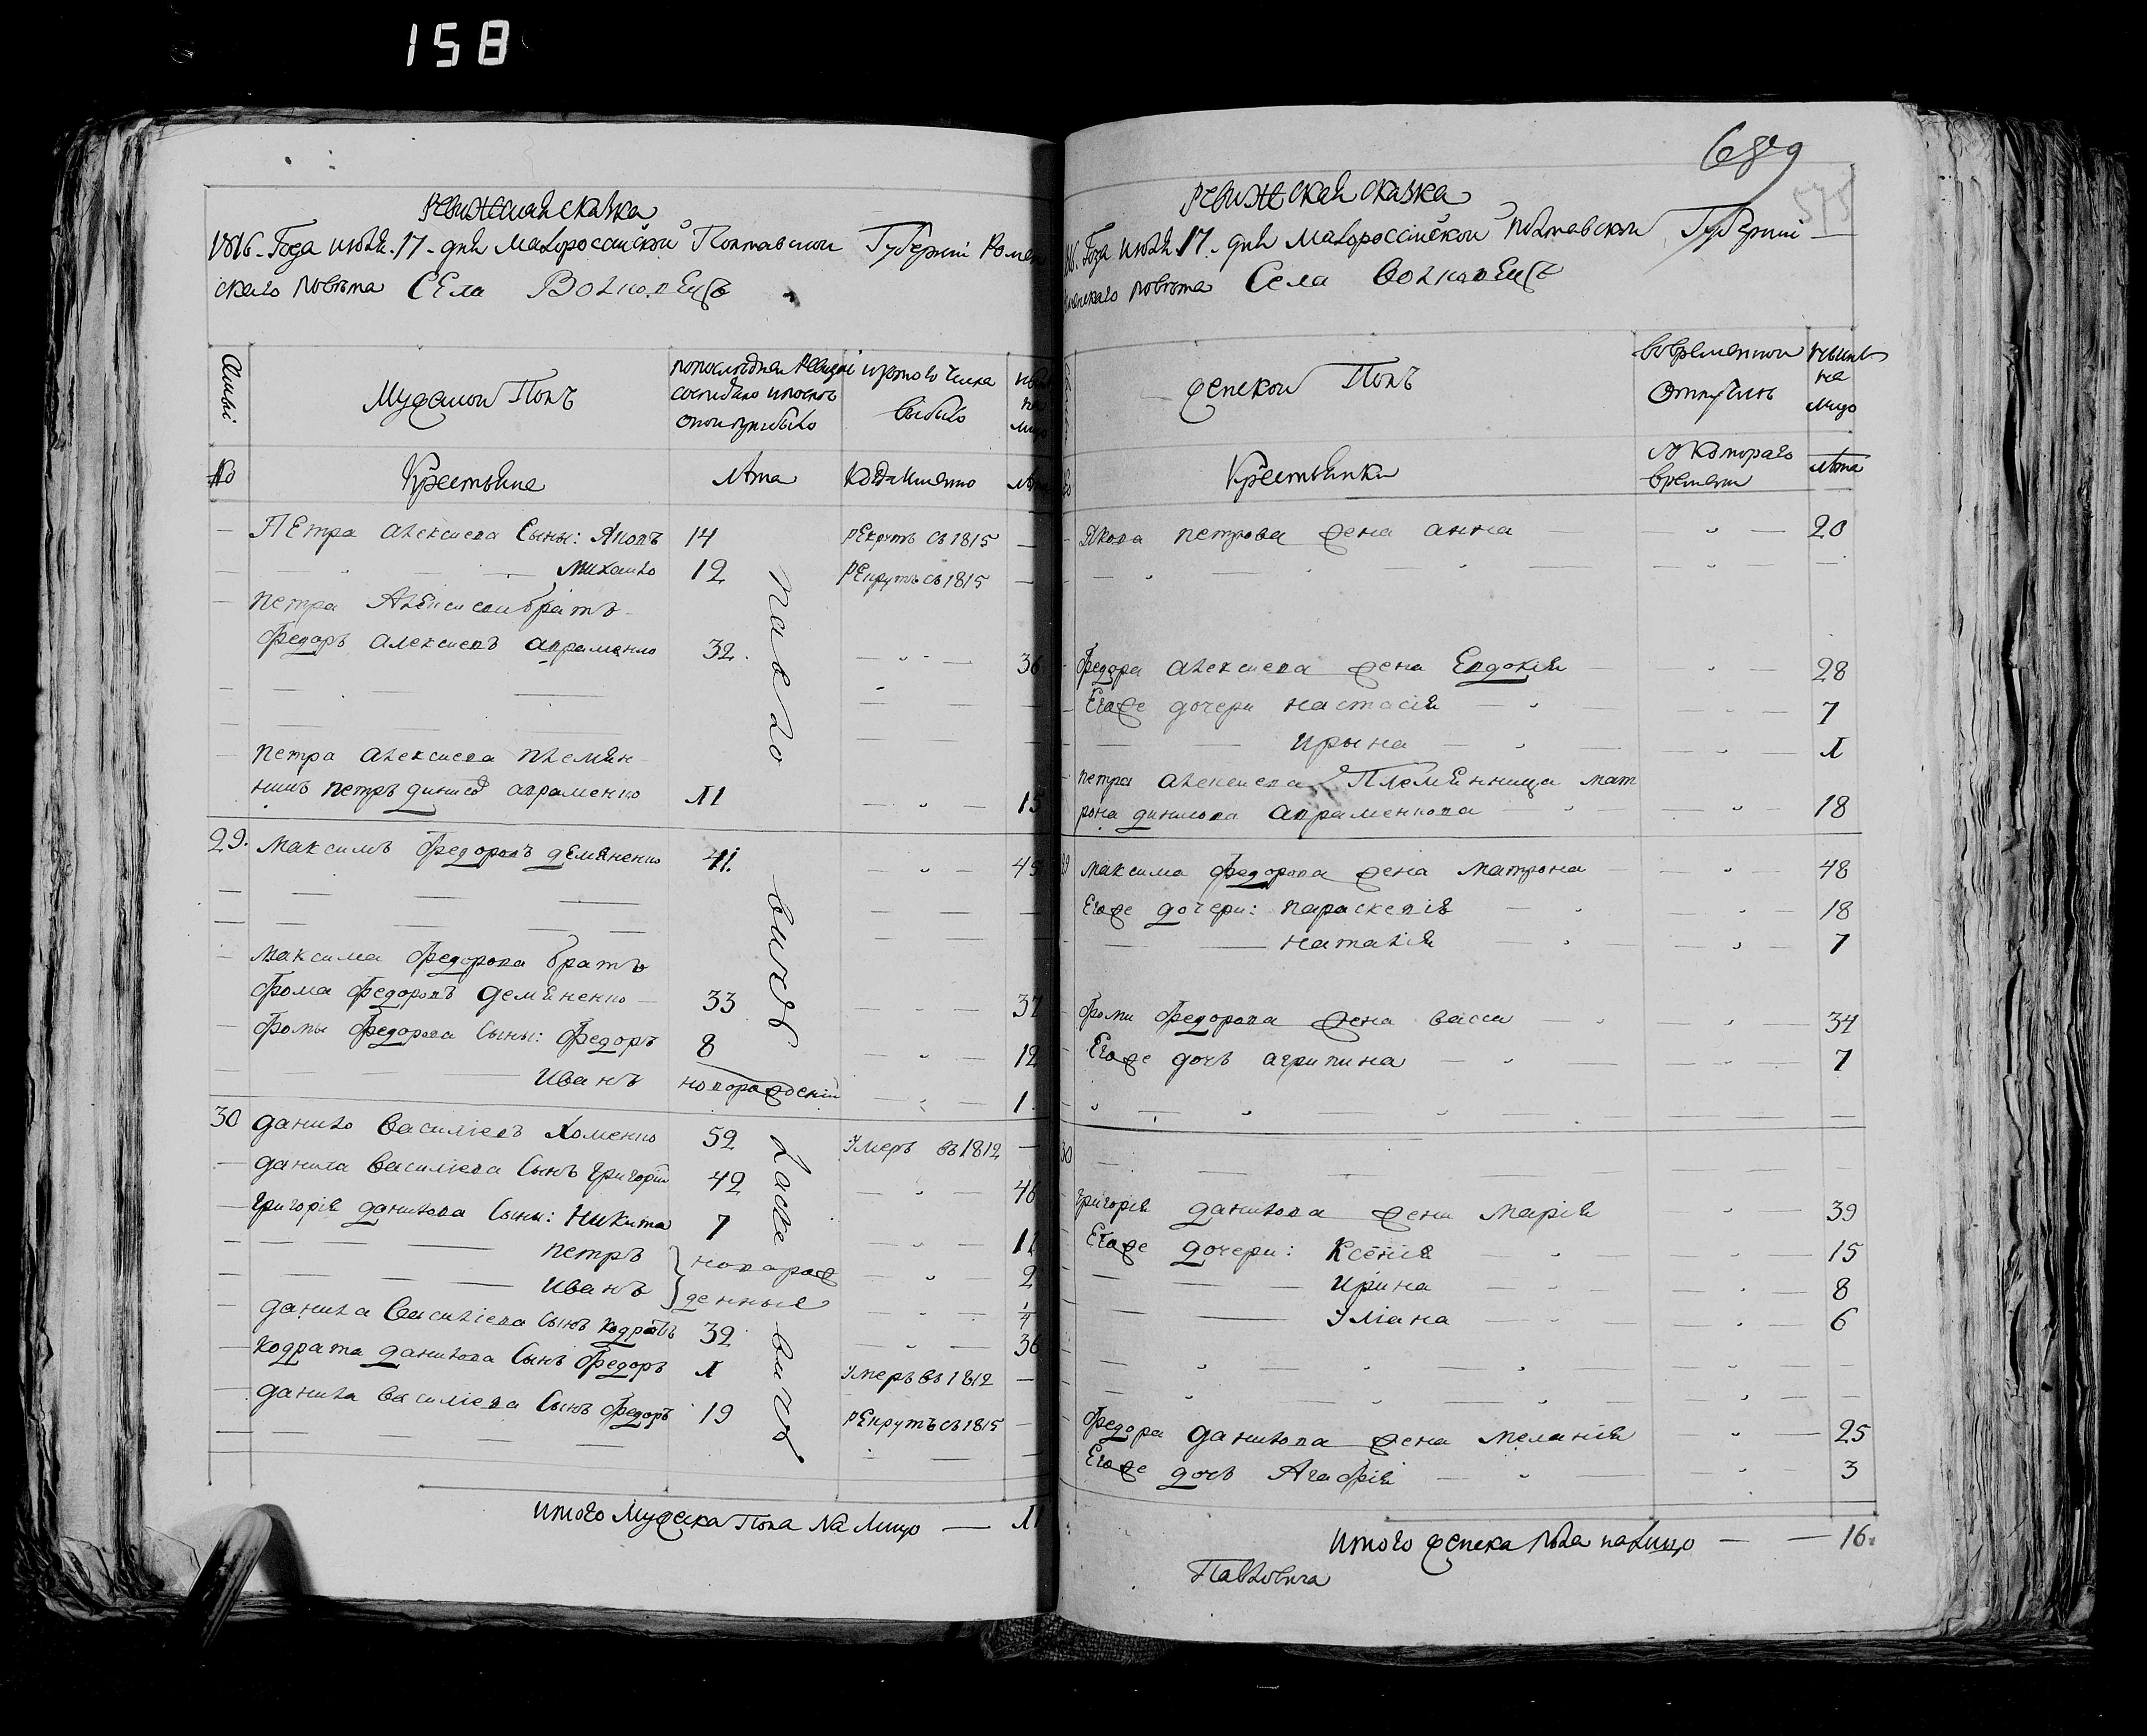 158
Ревижская сказка
1816. Года июля. 17. дня Малороссийской Полтавской Губернии Ромен
скаго Повета Села Волковец
Семьи
Мужескои Полъ
попоследней Ревизіи
состояло и после
оной прибыло
изтого числа
выбыло
№
Крестьяне
Лета
Когда имянно
— Петра Алексиева Сыны: Яковъ 14 рекрутъ съ 1815 —
Михаило 12 рекрутъ съ 1815 —
Петра Алексиева братъ
Федоръ Алексиевъ Авраменко 32. 36
Петра Алексиева племян
никъ Петръ Авраменко 11 15
29. Максимъ Федоровъ Демяненко 41. 45
Максима Федорова братъ
Фома Федоровъ Демяненко 33 37
Фомы Федорова Сыны: Федоръ 8 12
Иванъ новорожденній 1
30 Данило Василіевъ Хоменко 52 Умеръ въ 1812 —
Данила Василіева Сынъ Григорій 42 46
Григорія Данилова Сыны: Никита 7 11
Петръ новорож 2
Иванъ денныя
Данила Василіева Сынъ Кодратъ 32 36
Кодрата Данилова Сынъ Федоръ 1 Умеръ въ 1812 —
Данила Василіева Сынъ Федоръ 19 рекрутъ съ 1815 —
Итого Мужеска Пола На Лицо — 11
Павло
вичъ
вичъ
689
575
Ревижская сказка
Года июля 17. дня Малороссийской Полтавской Губернии
Роменскаго Повета Села Волковец
Женскои Полъ
вовременнои
отлучкѣ
ныне
на
лицо
Крестьянки
Скотораго
времени
Лета
Якова Петрова жена Анна 20
Федора Алексиева жена Евдокія 28
Егоже дочери Настасія 7
Ирына 1
Петра Алексиева Племянница Мат
рона Данилова Авраменкова 18
Максима Федорова жена Матрона 48
Егоже дочери: Параскевія 18
Наталія 7
Фомы Федорова жена Васса 34
Егоже дочь Агрипина 7
30
Григорія Данилова жена Марія 39
Егоже дочери: Ксенія 15
Ирина 8
Уліана 6
Федора Данилова жена Меланія 25
Егоже дочь Агафія 3
Итого женска пола налицо — 16.
Павловича